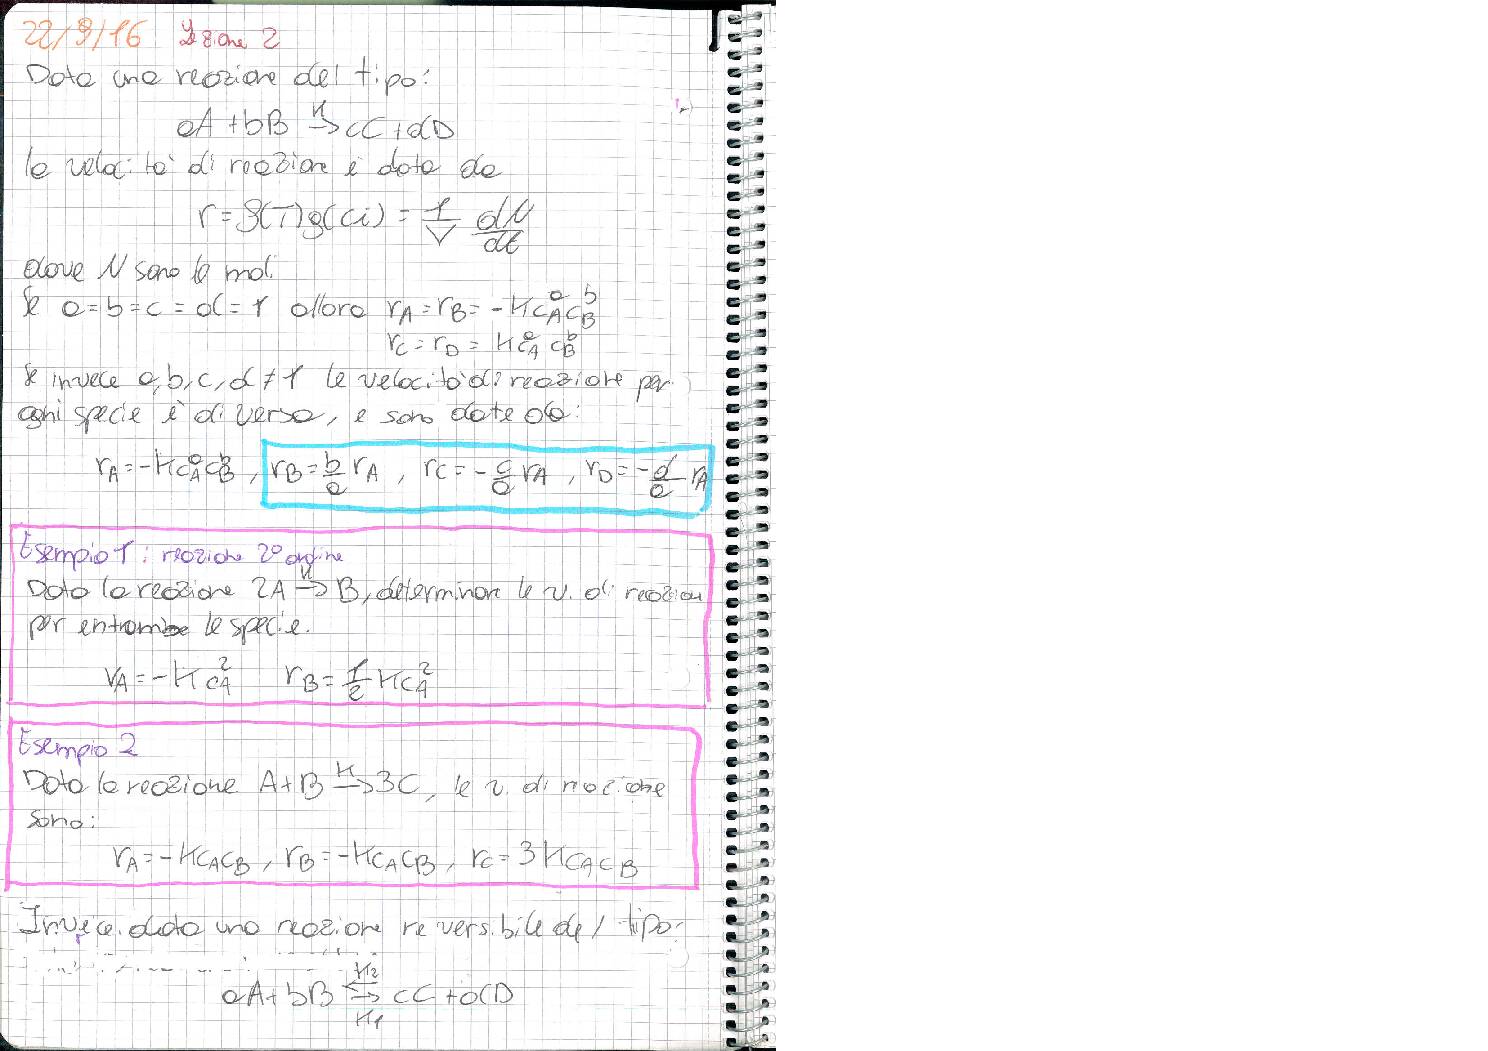 22/9/16 Lezione 2
Data una reazione del tipo:
aA + bB →ᵏ cC + dD
la velocità di reazione è data da
r = f(T)g(ci) = 1/V dN/dt
dove N sono le moli
Se a = b = c = d = 1 allora rA = rB = -k cA^a cB^b
rC = rD = k cA^a cB^b
Se invece a, b, c, d ≠ 1 la velocità di reazione per
ogni specie è diversa, e sono date da:
rA = -k cA^a cB^b, rB = b/a rA, rC = -c/a rA, rD = -d/a rA
Esempio 1: reazione 2° ordine
Data la reazione 2A →ᵏ B, determinare le v. di reazione
per entrambe le specie.
rA = -k cA² rB = 1/2 k cA²
Esempio 2
Data la reazione A + B →ᵏ 3C, le v. di reazione
sono:
rA = -k cA cB, rB = -k cA cB, rC = 3 k cA cB
Invece data una reazione reversibile del tipo:
k2
aA + bB ⇄ cC + dD
k1